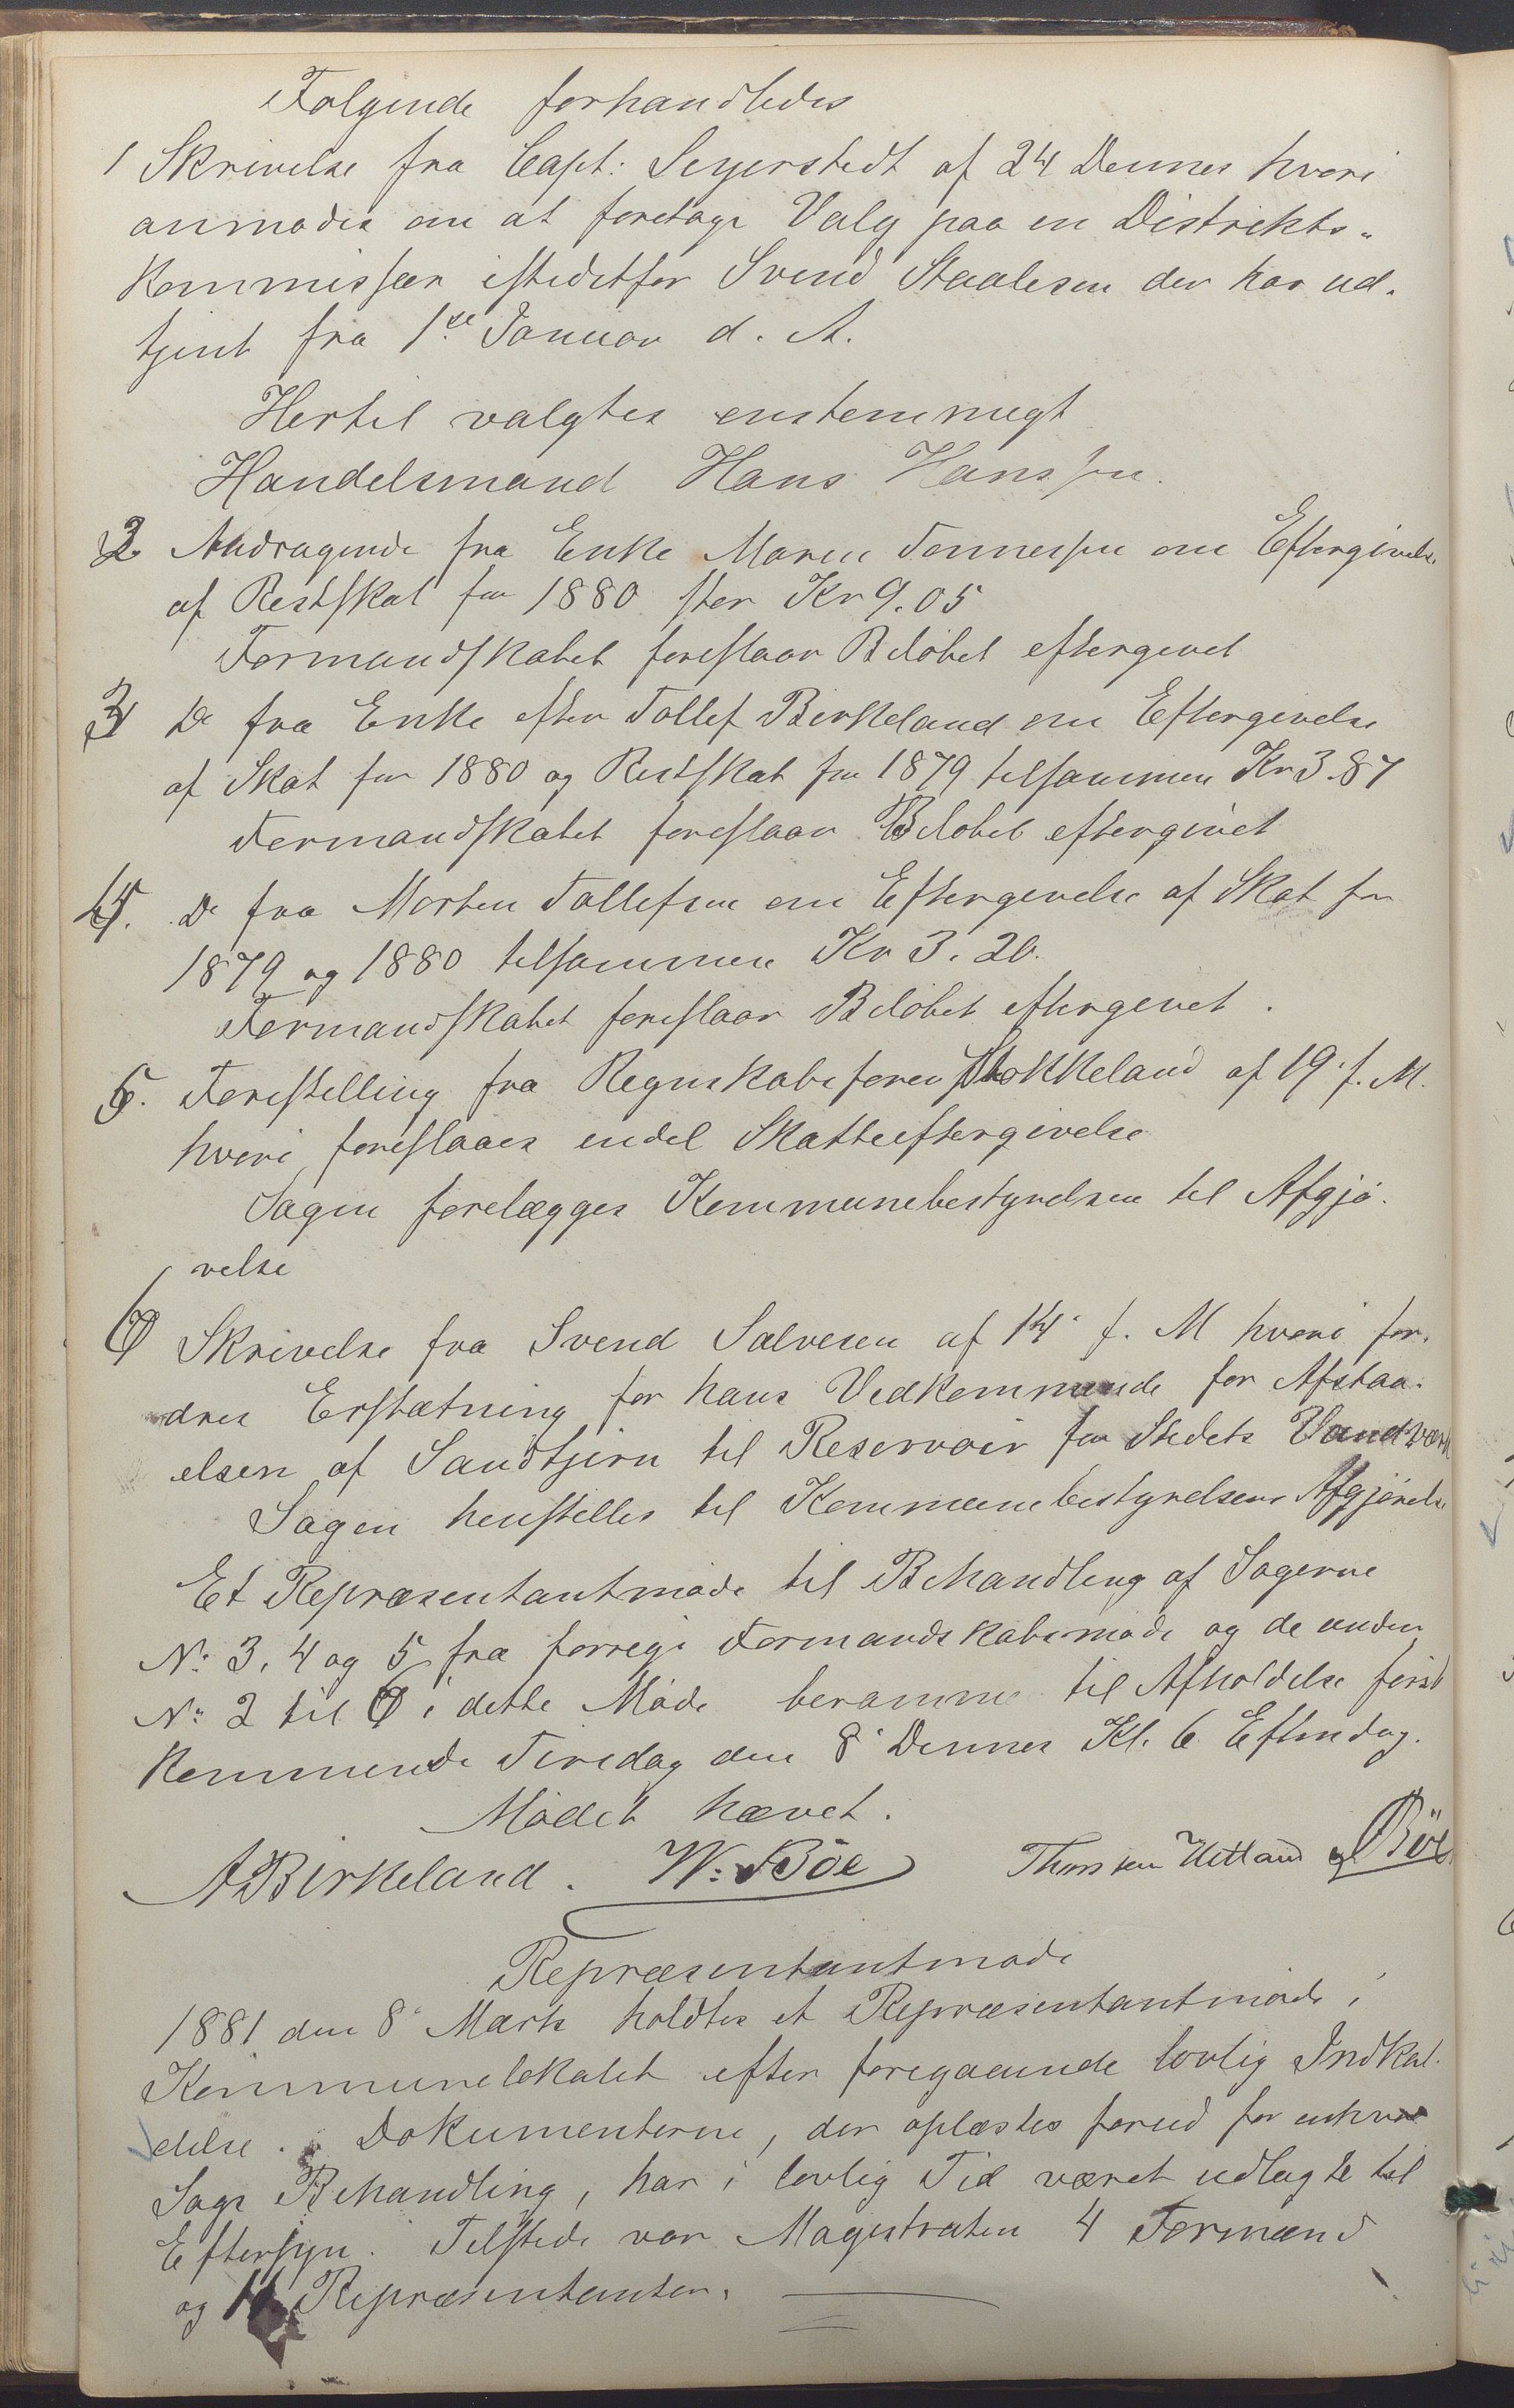 Følgende forhandledes
1 Skrivelse fra Capt: Seyerstedt af 24 Dennes hvori
anmodes om at foretage Valg paa en Distrikts-
kommissær istedetfor Svend Staalesen der har ud-
tjent fra 1ste Januar d. A.
Hertil valgtes enstemmigt
Handelsmand Hans Hanssen.
2 Andragende fra Enke Maren Tønnessen om Eftergivelse
af Restskat for 1880 stor Kr 9.05
Formandskabet foreslaar Beløbet eftergivet
3 Do fra Enke efter Tollef Birkeland om Eftergivelse
af Skat for 1880 og Restskat for 1879 tilsammen Kr 3.87
Formandskabet foreslaar Beløbet eftergivet
4. Do fra Morten Tollefsen om Eftergivelse af Skat for
1879 og 1880 tilsammen Kr 3.20.
Formandskabet foreslaar Beløbet eftergivet.
5. Forestilling fra Regnskabsfører Stokkeland af 19 f. M.
hvori foreslaaes endel Skatteeftergivelse
Sagen forelægges Kommunebestyrelsen til Afgjø-
relse
6 Skrivelse fra Svend Salvesen af 14 f. M hvori for-
dres Erstatning for hans Vedkommende for Afstaa-
elsen af Sandtjern til Reservoir for Stedets Vandværk
Sagen henstilles til Kommunebestyrelsens Afgjørelse
Et Repræsentantmøde til Behandling af Sagerne
No 3, 4 og 5 fra forrige Formandskabsmøde og de under
No 2 til 6 i dette Møde berammes til Afholdelse først
kommende Tirsdag den 8 Dennes Kl. 6 Eftmdag.
Mødet hævet.
A Birkeland. W. Böe Thorsten Uelland Böe
Repræsentantmøde
1881 den 8 Marts holdtes et Repræsentantmøde i
Kommunelokalet efter foregaaende lovlig Indkal-
delse. Dokumenterne, der oplæstes forud for enhver
Sags Behandling, har i lovlig Tid været udlagte til
Eftersyn. Tilstede var Magistraten 4 Formænd
og Repræsentanter.